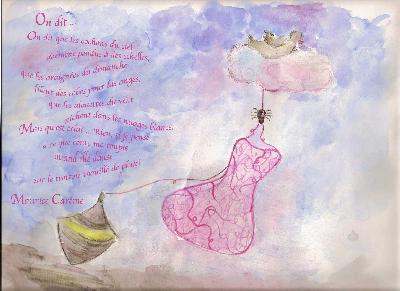 On dit...
On dit que les cochons du ciel
dorment pendus à des échelles,
que les araignées du dimanche
tissent des robes pour les anges,
que les
pêchent dans les nuages blancs.
Mais qu'est-ce que ... Rien, il pense
à ce que ma toupie
quand elle danse
sur le tambour mouillé de pluie!
Maurice Carême